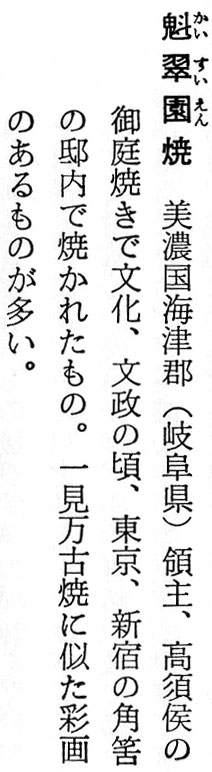 魁翠園焼　美濃国海津郡（岐阜県）領主、高須侯の
御庭焼きで文化、文政の頃、東京、新宿の角筈
の邸内で焼かれたもの。一見万古焼に似た彩画
のあるものが多い。